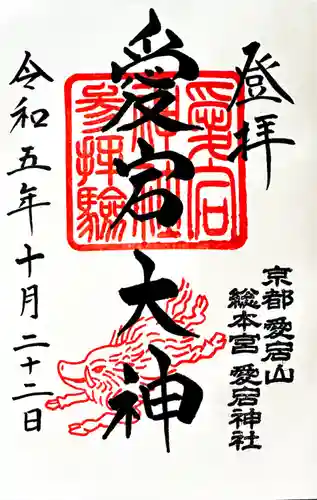 登拝
愛宕大神
愛宕神社参拝験
京都愛宕山
総本宮 愛宕神社
令和五年十月二十二日